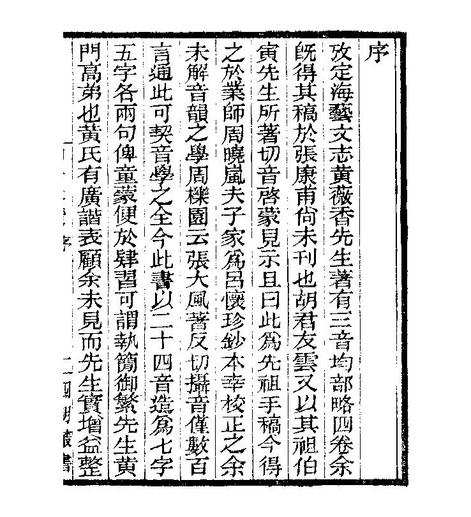 序
攷定海藝文志黃薇香先生著有三音均部略四卷余
旣得其稿於張康甫尙未刊也胡君友雲又以其祖伯
寅先生所著切音啓蒙見示且曰此爲先祖手稿今得
之於業師周曉嵐夫子家爲呂懷珍鈔本幸校正之余
未解音韻之學周櫟園云張大風著反切攝音僅數百
言通此可契音學之全今此書以二十四音造爲七字
五字各兩句俾童蒙便於肄習可謂執簡御繁先生黃
門高弟也黃氏有廣諧表顧余未見而先生實增益整
序 一 四明叢書